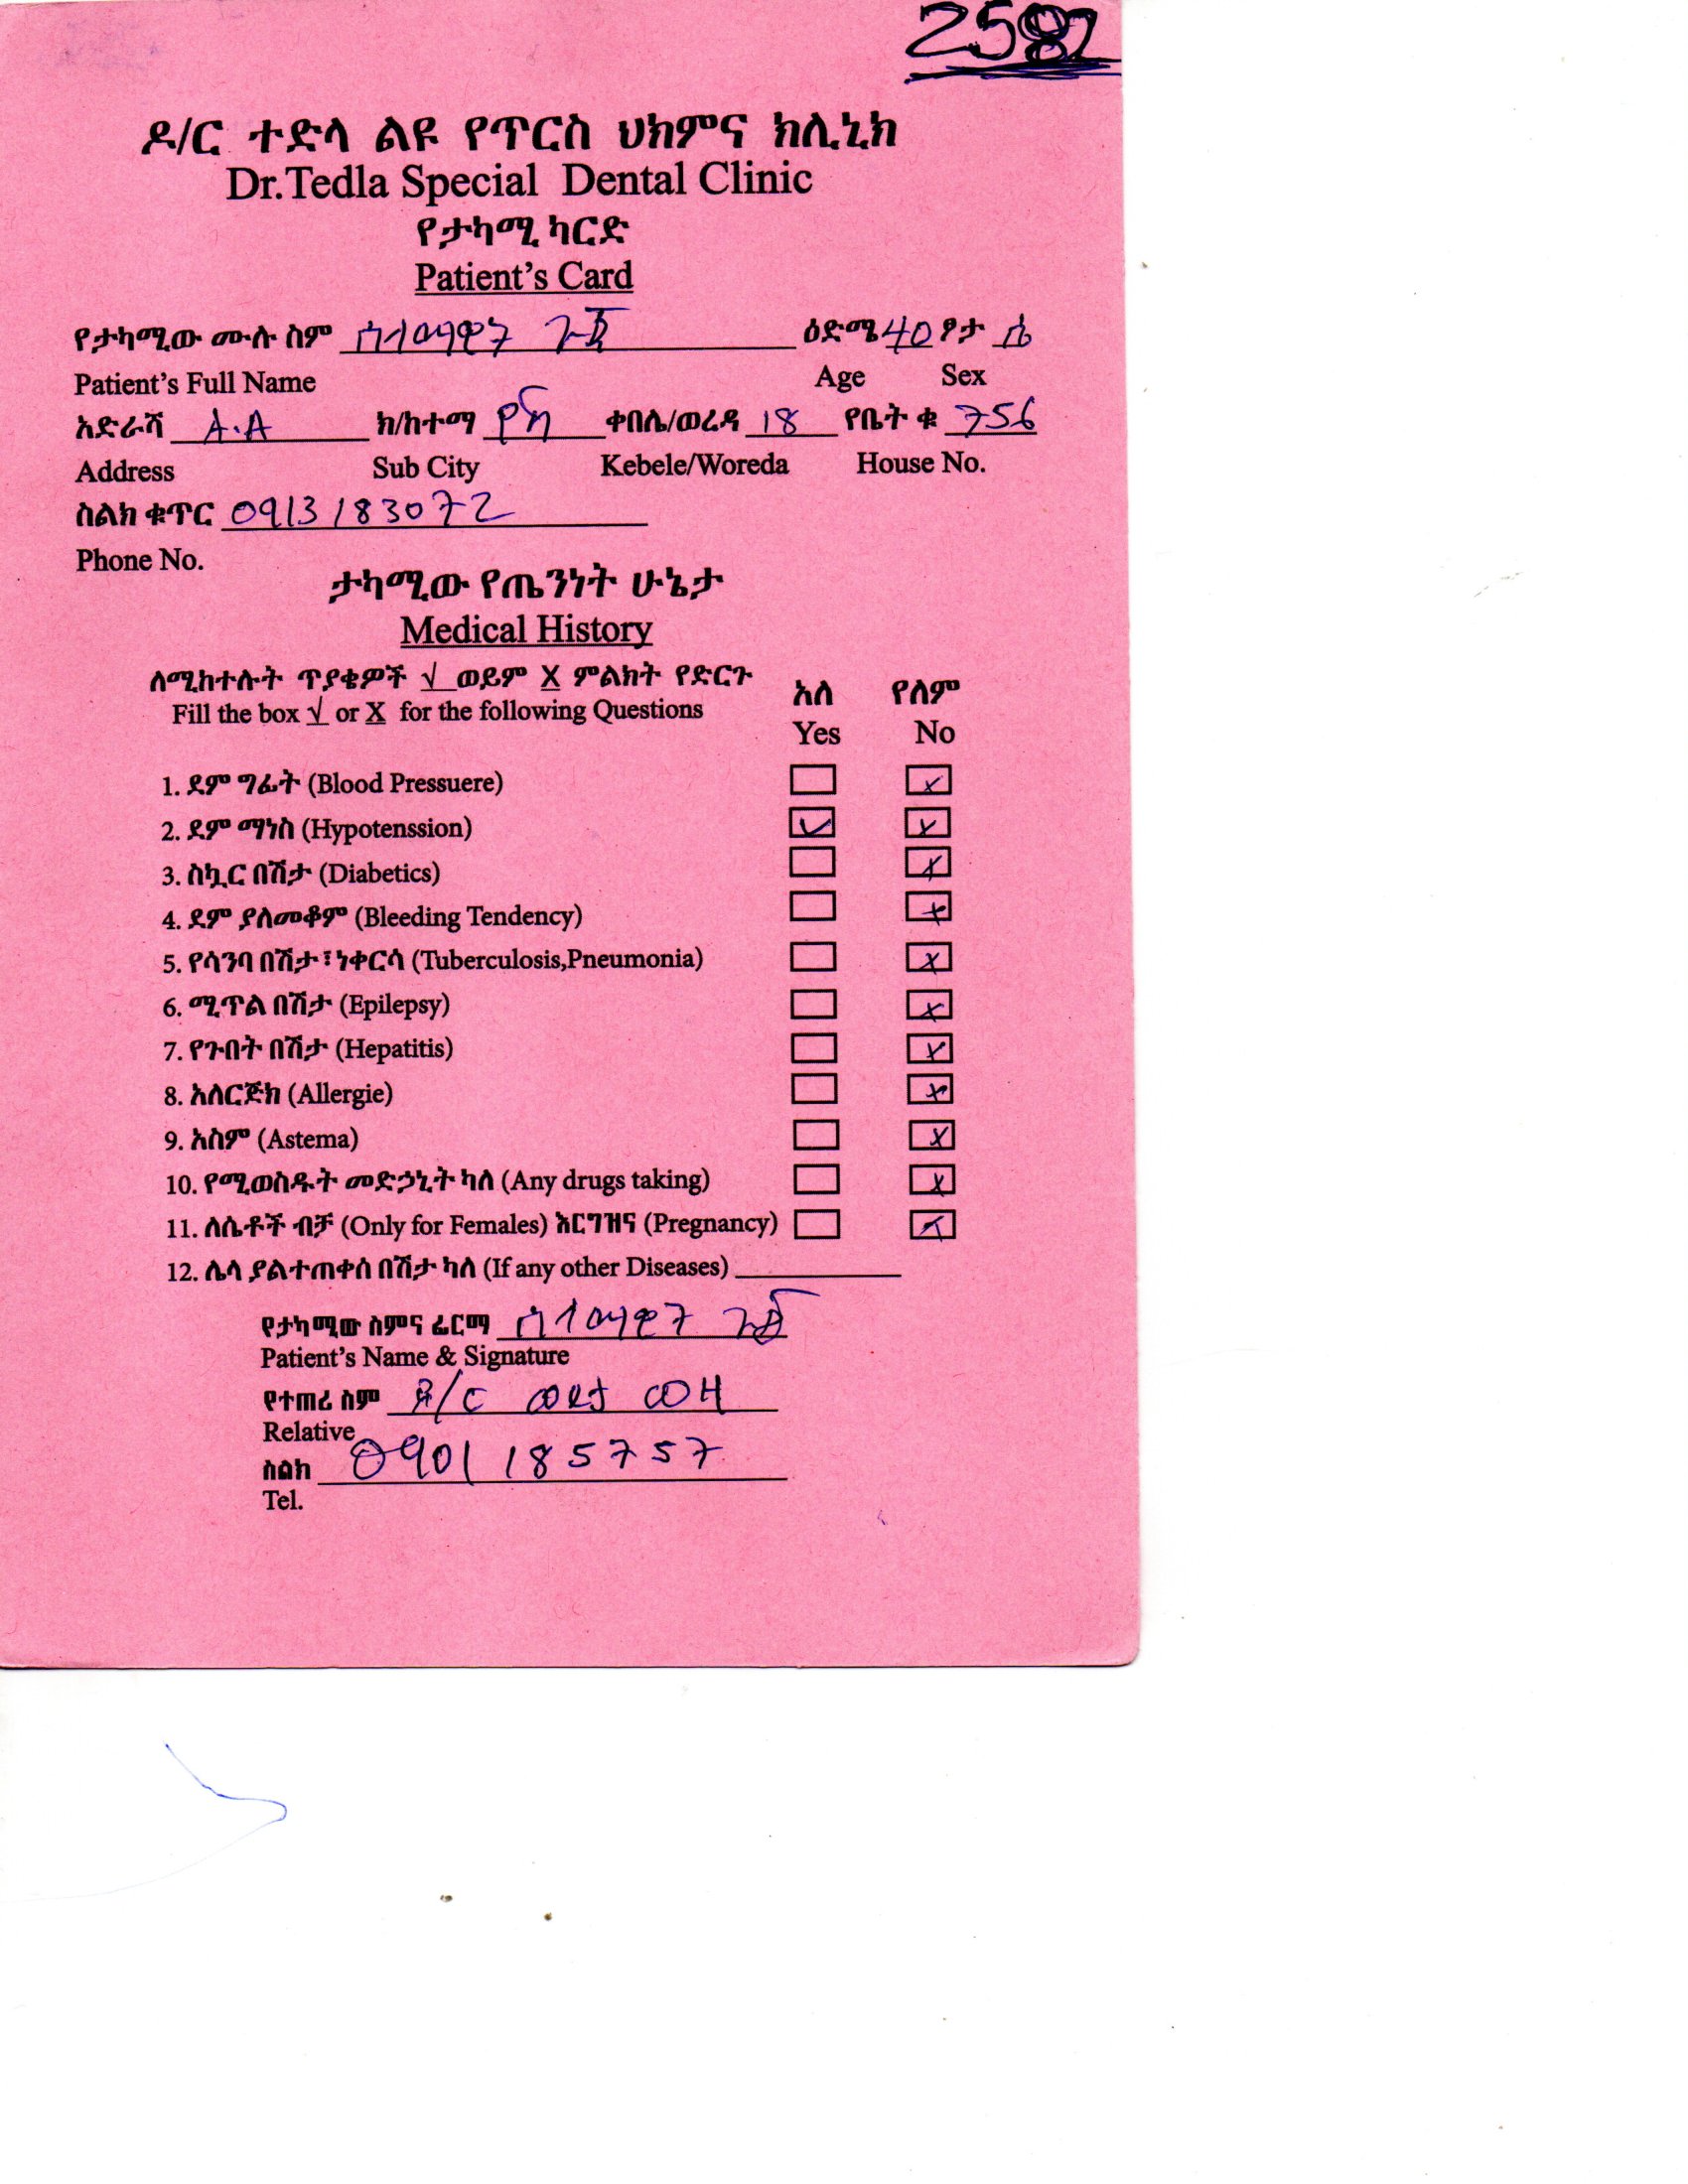 ዶ/ር ተድላ ልዩ የጥርስ ህክምና ክሊኒክ
Dr.Tedla Special Dental Clinic
የታካሚ ካርድ
Patient's Card
የታካሚው ሙሉ ስም ዕድሜ 40 ፆታ ሴ
Patient's Full Name Age Sex
አድራሻ A.A ክ/ከተማ የካ ቀበሌ/ወረዳ 18 የቤት ቁ 756
Address Sub City Kebele/Woreda House No.
ስልክ ቁጥር 0913183072
Phone No.
ታካሚው የጤንነት ሁኔታ
Medical History
ለሚከተሉት ጥያቄዎች √ ወይም X ምልክት የድርጉ
Fill the box √ or X for the following Questions
አለ የለም
Yes No
1. ደም ግፊት (Blood Pressuere) X
2. ደም ማነስ (Hypotenssion) √ X
3. ስኳር በሽታ (Diabetics) X
4. ደም ያለመቆም (Bleeding Tendency) X
5. የሳንባ በሽታ፣ነቀርሳ (Tuberculosis,Pneumonia) X
6. ሚጥል በሽታ (Epilepsy) X
7. የጉበት በሽታ (Hepatitis) X
8. አለርጅክ (Allergie) X
9. አስም (Astema) X
10. የሚወስዱት መድኃኒት ካለ (Any drugs taking) X
11. ለሴቶች ብቻ (Only for Females) እርግዝና (Pregnancy) X
12. ሌላ ያልተጠቀሰ በሽታ ካለ (If any other Diseases)
የታካሚው ስምና ፊርማ
Patient's Name & Signature
የተጠሪ ስም
Relative
ስልክ 0901185757
Tel.